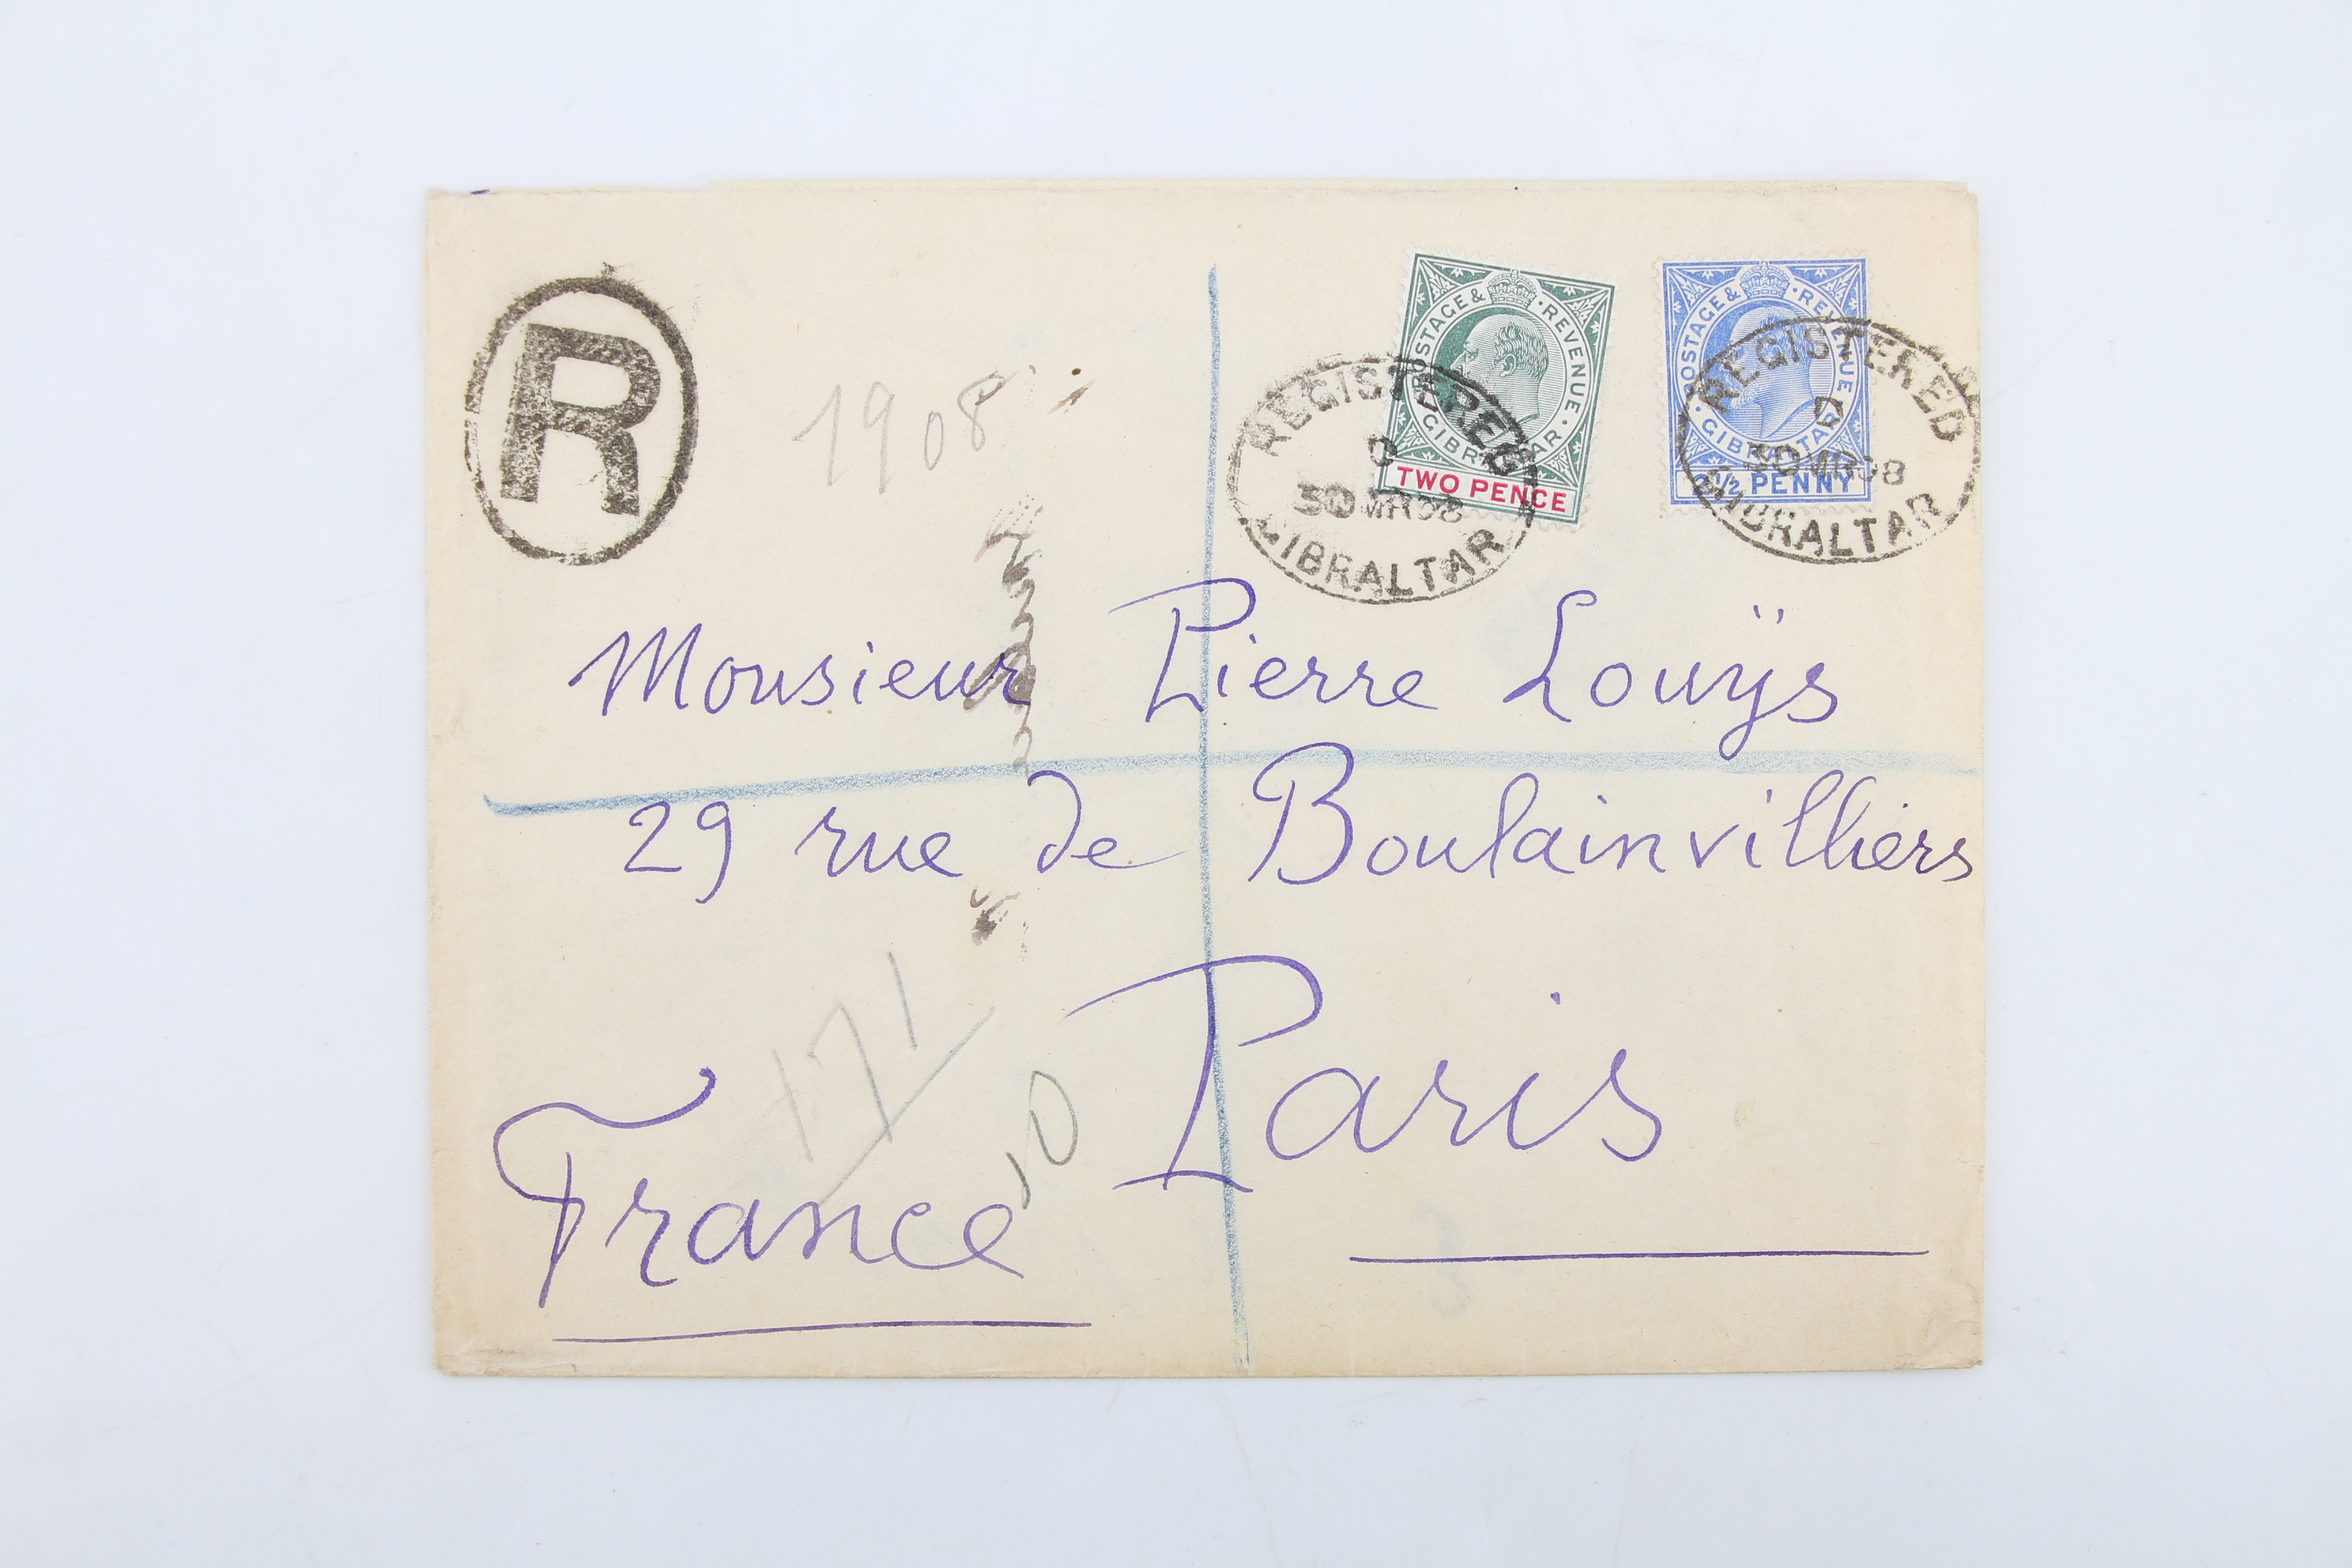 R
1908
POSTAGE & REVENUE
GIBRALTAR
TWO PENCE
POSTAGE & REVENUE
GIBRALTAR
2½ PENNY
REGISTERED
C
30 MR 08
GIBRALTAR
REGISTERED
C
30 MR 08
GIBRALTAR
Monsieur Pierre Louÿs
29 rue de Boulainvilliers
171
10
Paris
France